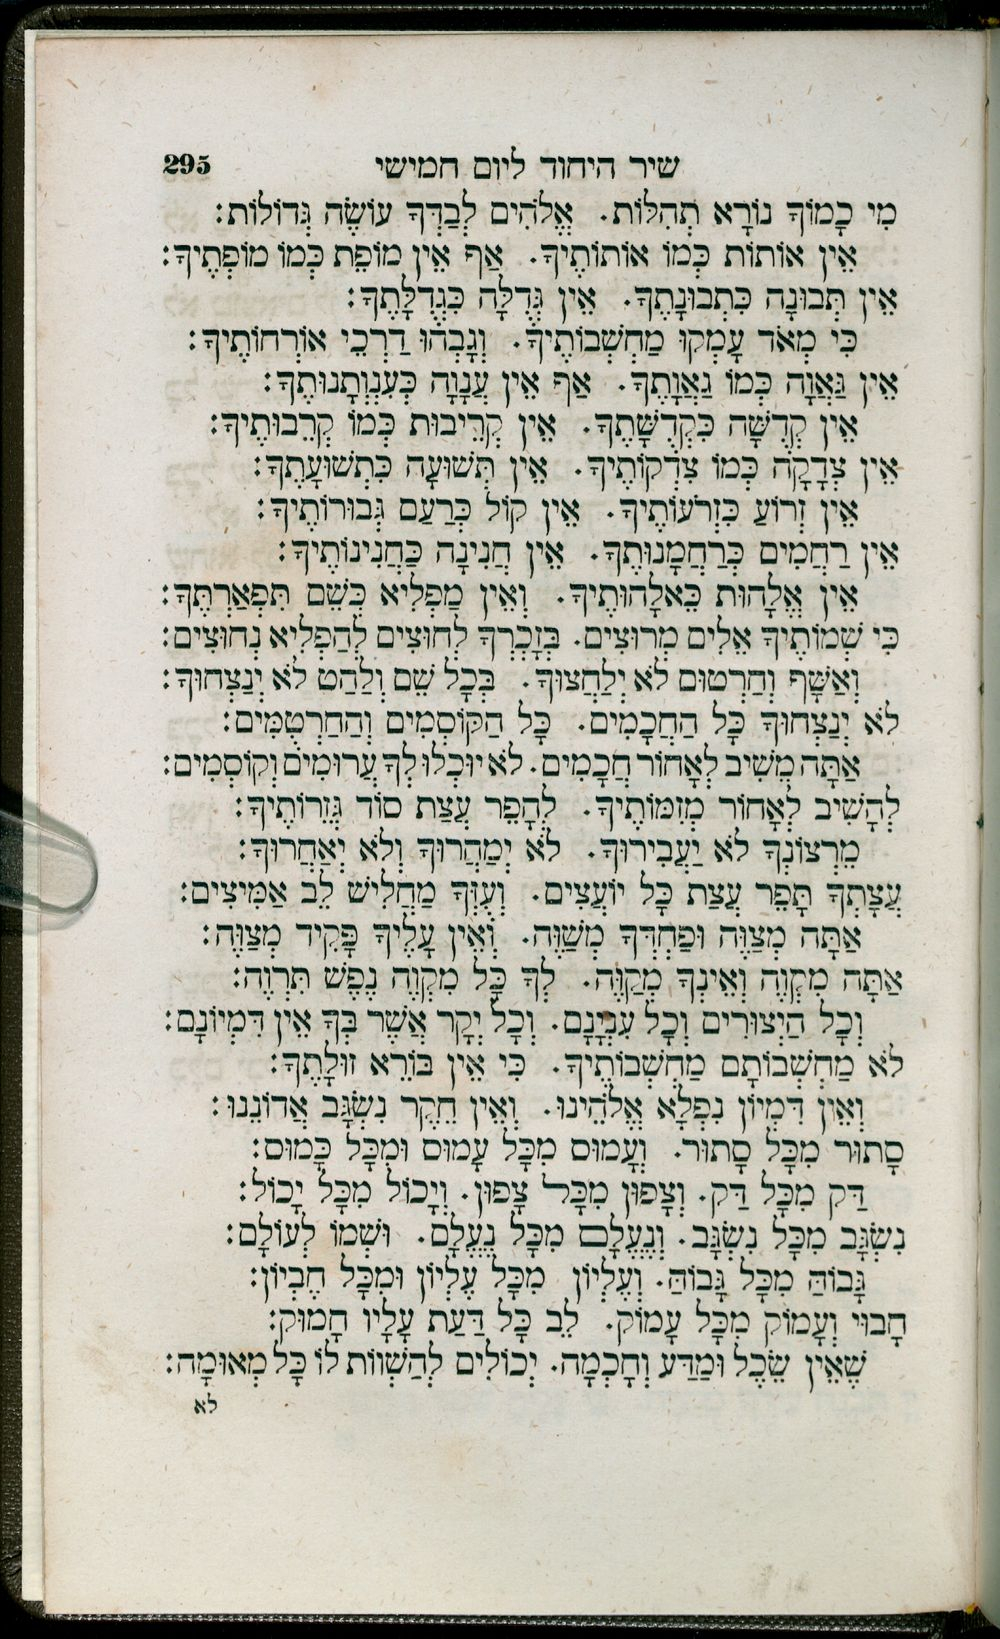 שיר היחוד ליום חמישי 295
מִי כָמוֹךָ נוֹרָא תְהִלּוֹת. אֱלֹהִים לְבַדְּךָ עוֹשֶׂה גְּדוֹלוֹת:
אֵין אוֹתוֹת כְּמוֹ אוֹתוֹתֶיךָ. אַף אֵין מוֹפֵת כְּמוֹ מוֹפְתֶיךָ:
אֵין תְּבוּנָה כִּתְבוּנָתֶךָ. אֵין גְּדֻלָּה כִּגְדֻלָּתֶךָ:
כִּי מְאֹד עָמְקוּ מַחְשְׁבוֹתֶיךָ. וְגָבְהוּ דַרְכֵי אוֹרְחוֹתֶיךָ:
אֵין גַּאֲוָה כְּמוֹ גַאֲוָתֶךָ. אַף אֵין עֲנָוָה כְּעַנְוְתָנוּתֶךָ:
אֵין קְדֻשָּׁה כִּקְדֻשָּׁתֶךָ. אֵין קְרֵיבוּת כְּמוֹ קְרֵבוּתֶיךָ:
אֵין צְדָקָה כְּמוֹ צִדְקוֹתֶיךָ. אֵין תְּשׁוּעָה כִּתְשׁוּעָתֶךָ:
אֵין זְרוֹעַ כִּזְרֹעוֹתֶיךָ. אֵין קוֹל כְּרַעַם גְּבוּרוֹתֶיךָ:
אֵין רַחֲמִים כְּרַחֲמָנוּתֶךָ. אֵין חֲנִינָה כַּחֲנִינוֹתֶיךָ:
אֵין אֱלָהוּת כֵּאלָהוּתֶיךָ. וְאֵין מַפְלִיא כְּשֵׁם תִּפְאַרְתֶּךָ:
כִּי שְׁמוֹתֶיךָ אֵלִים מְרוּצִים. בְּזָכְרְךָ לְחוּצִים לְהַפְלִיא נְחוּצִים:
וְאַשָּׁף וְחַרְטוּם לֹא יְלַחֲצוּךָ. בְּכָל שֵׁם וְלַהַט לֹא יְנַצְּחוּךָ:
לֹא יְנַצְּחוּךָ כָּל הַחֲכָמִים. כָּל הַקּוֹסְמִים וְהַחַרְטֻמִּים:
אַתָּה מֵשִׁיב לְאָחוֹר חֲכָמִים. לֹא יוּכְלוּ לְךָ עֲרוּמִים וְקוֹסְמִים:
לְהָשִׁיב לְאָחוֹר מְזִמּוֹתֶיךָ. לְהָפֵר עֲצַת סוֹד גְּזֵרוֹתֶיךָ:
מֵרְצוֹנְךָ לֹא יַעֲבִירוּךָ. לֹא יְמַהֲרוּךָ וְלֹא יְאַחֲרוּךָ:
עֲצָתְךָ תָּפֵר עֲצַת כָּל יוֹעֲצִים. וְעֻזְּךָ מַחֲלִישׁ לֵב אַמִּיצִים:
אַתָּה מְצַוֶּה וּפַחְדְּךָ מְשַׁוֶּה. וְאֵין עָלֶיךָ פָּקִיד מְצַוֶּה:
אַתָּה מִקְוֶה וְאֵינְךָ מְקַוֶּה. לְךָ כָּל מִקְוֶה נֶפֶשׁ תִּרְוֶה:
וְכָל הַיְצוּרִים וְכָל עִנְיָנָם. וְכָל יְקָר אֲשֶׁר בְּךָ אֵין דִּמְיוֹנָם:
לֹא מַחְשְׁבוֹתָם מַחְשְׁבוֹתֶיךָ. כִּי אֵין בּוֹרֵא זוּלָתֶךָ:
וְאֵין דִּמְיוֹן נִפְלָא אֱלֹהֵינוּ. וְאֵין חֵקֶר נִשְׂגָּב אֲדוֹנֵנוּ:
סָתוּר מִכָּל סָתוּר. וְעָמוּס מִכָּל עָמוּס וּמִכָּל כָּמוּס:
דַּק מִכָּל דַּק. וְצָפוּן מִכָּל צָפוּן. וְיָכוֹל מִכָּל יָכוֹל:
נִשְׂגָּב מִכָּל נִשְׂגָּב. וְנֶעֱלָם מִכָּל נֶעֱלָם. וּשְׁמוֹ לְעוֹלָם:
גָּבוֹהַּ מִכָּל גָּבוֹהַּ. וְעֶלְיוֹן מִכָּל עֶלְיוֹן וּמִכָּל חֶבְיוֹן:
חָבוּי וְעָמוֹק מִכָּל עָמוֹק. לֵב כָּל דַּעַת עָלָיו חָמוּק:
שֶׁאֵין שֵׂכֶל וּמַדָּע וְחָכְמָה. יְכוֹלִים לְהַשְׁווֹת לוֹ כָּל מְאוּמָה:
לא